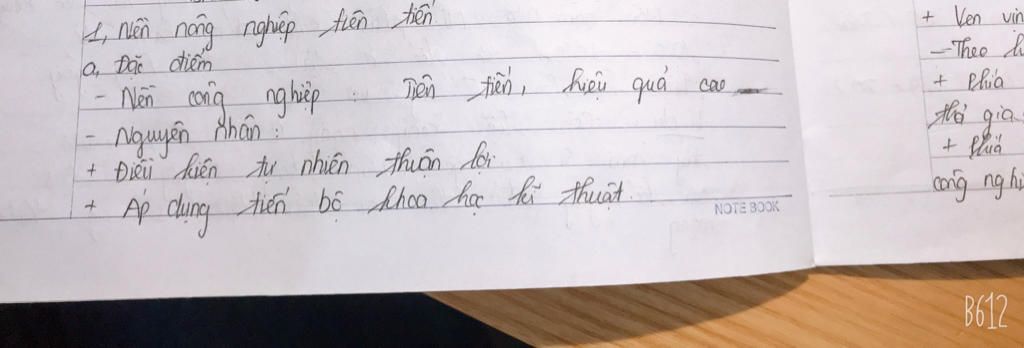 1, Nền nông nghiệp tiên tiến
a, Đặc điểm
- Nền công nghiệp : Tiên tiến, hiệu quả cao
- Nguyên nhân :
+ Điều kiện tự nhiên thuận lợi
+ Áp dụng tiến bộ khoa học kĩ thuật.
NOTE BOOK
+ Ven
- Theo
+ Phía
thả gia
+ Phía
công
B612